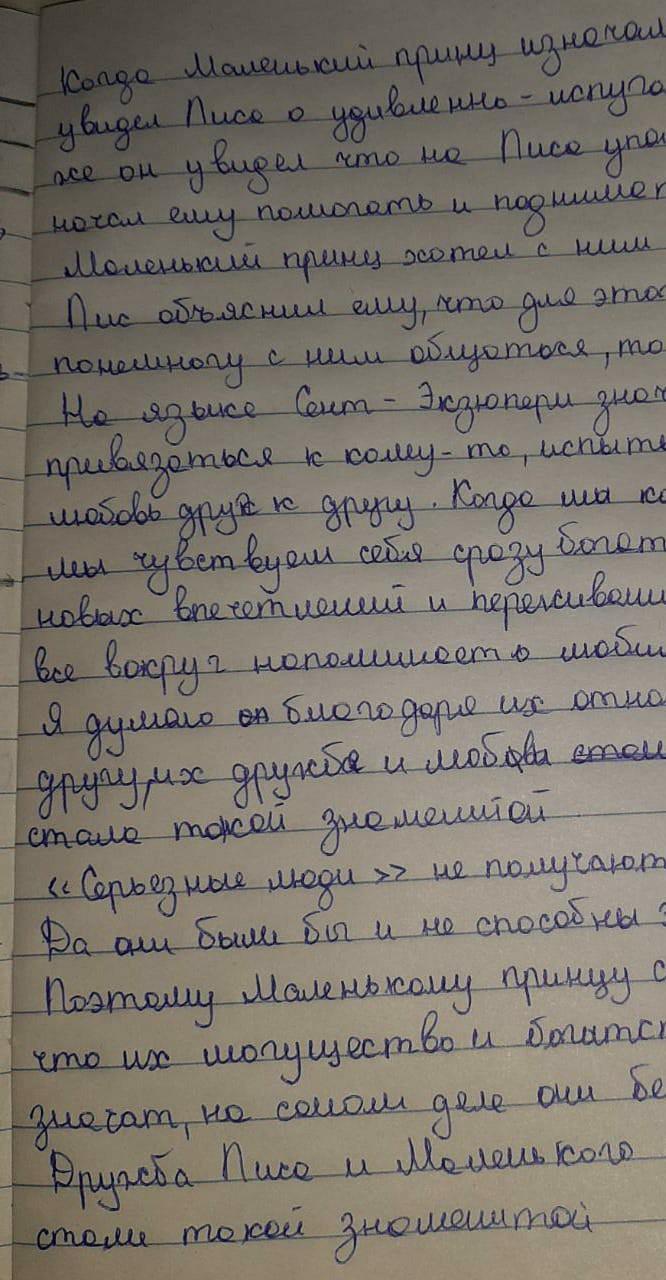 Когда Маленький принц изначал
увидел Лиса о удивленно-испуга
же он увидел что на Лиса упа
начал ему помогать и поднимат
Маленький принц хотел с ним
Лис объяснил ему, что для этог
понемногу с ним общаться, то
На языке Сент-Экзюпери знач
привязаться к кому-то, испыты
любовь друг к другу. Когда мы ко
мы чувствуем себя сразу богат
новых впечетлений и переживани
все вокруг напоминает о любим
Я думаю он благодаря их отно
другу, их дружба и любовь стал
стала такой знаменитой
«Серьезные люди» не получают
Да они были бы и не способны
Поэтому Маленькому принцу с
что их могущество и богатст
значат, на самом деле они бе
Дружба Лиса и Маленького
стали такой знаменитой